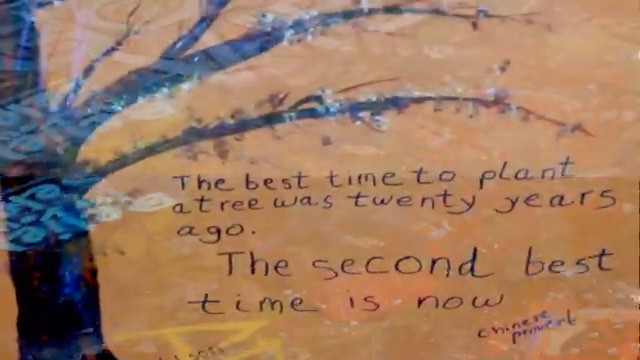 The best time to plant
a tree was twenty years
ago.
The second best
time is now
chinese
proverb